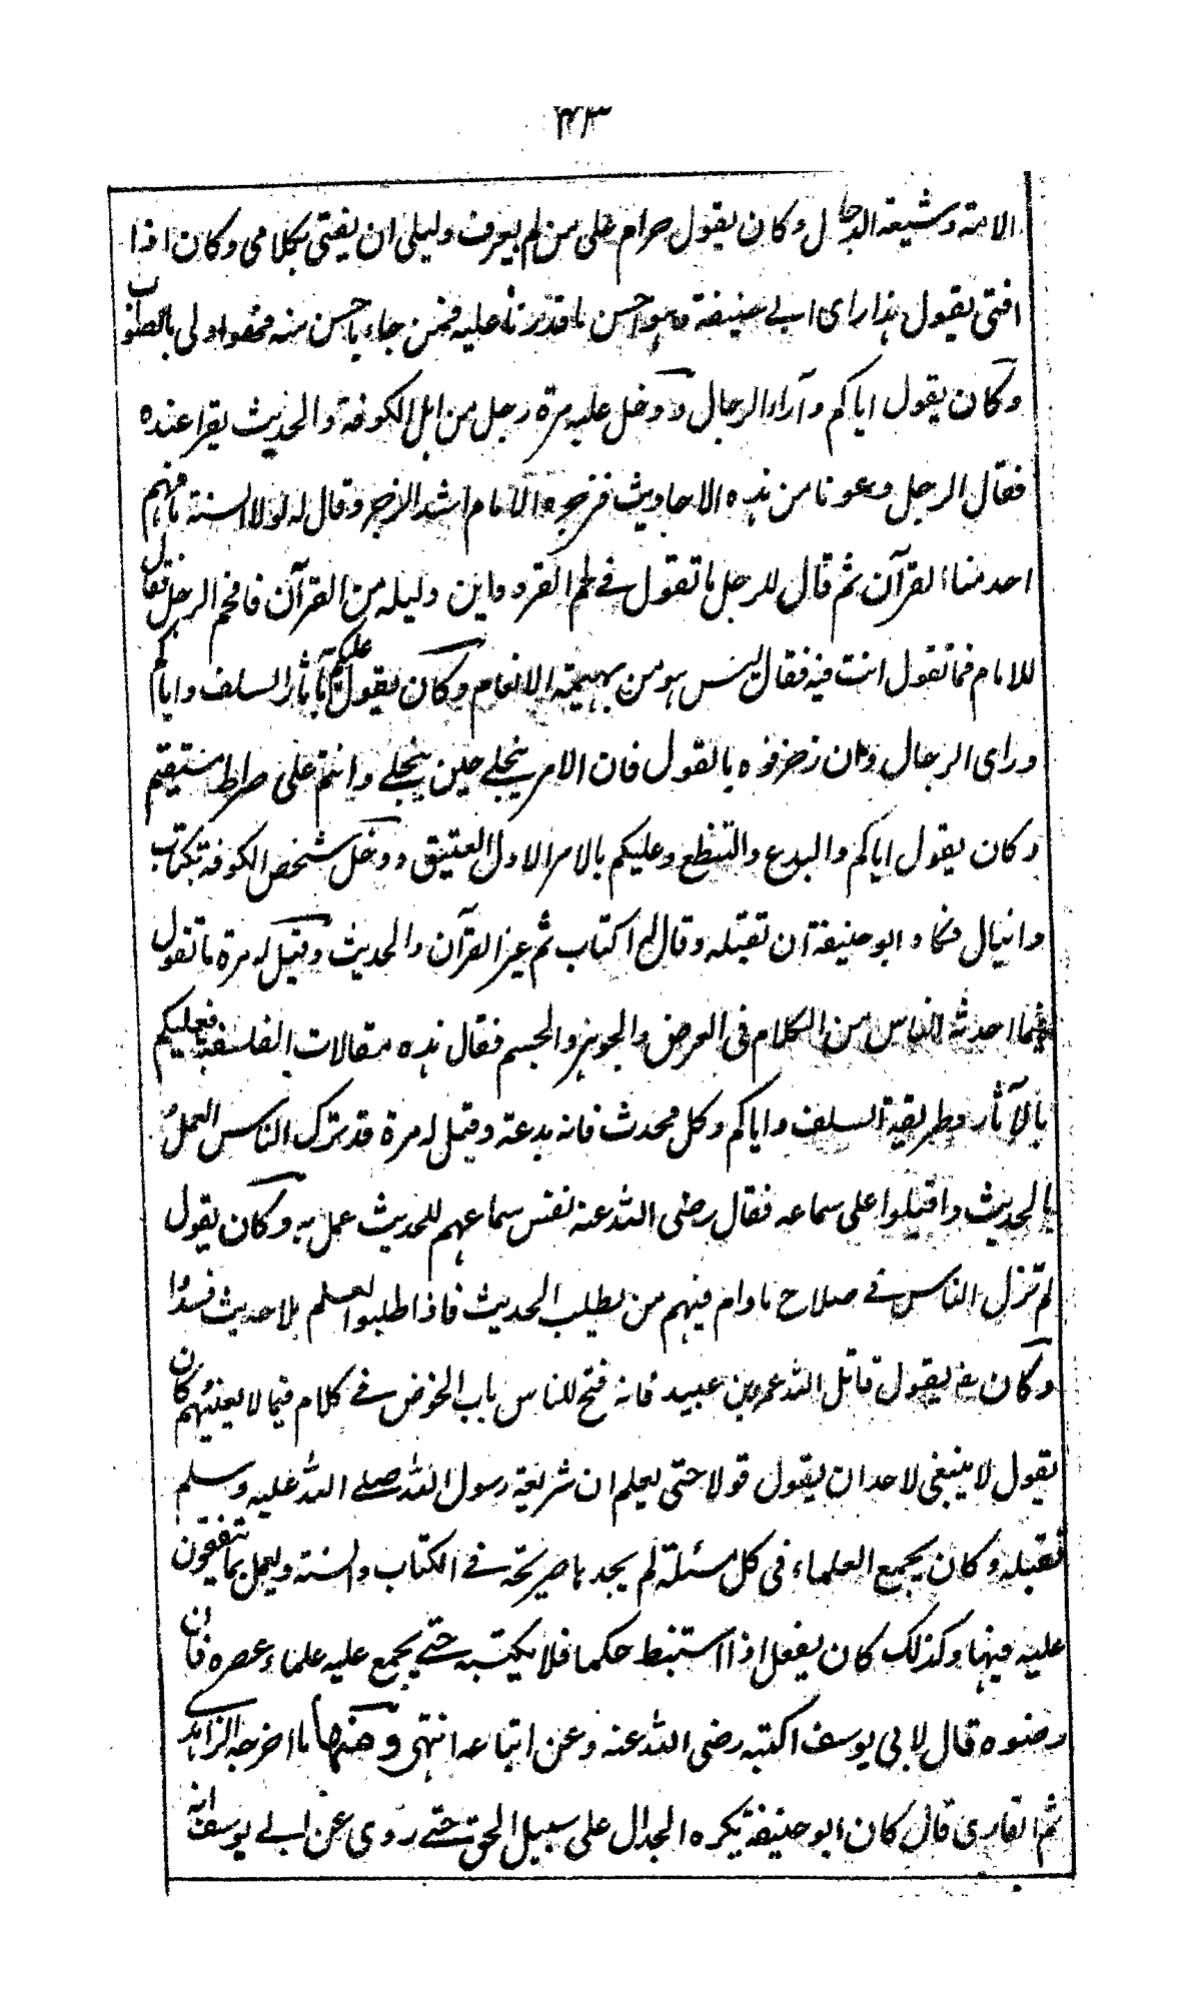 ۴۳
الامة وشيعة الدجال وكان يقول حرام على من لم يعرف دليلى ان يفتى بكلامى وكان اذا
افتى يقول هذا راى ابى حنيفة وهو احسن ما قدرنا عليه فمن جاء باحسن منه فهو اولى بالصواب
وكان يقول اياكم وآراء الرجال ودخل عليه مرة رجل من اهل الكوفة والحديث يقرا عنده
فقال الرجل دعونا من هذه الاحاديث فزجره الامام اشد الزجر وقال له لولا السنة ما فهم
احد منا القرآن ثم قال للرجل ما تقول فى لحم القرد واين دليله من القرآن فافحم الرجل فقال
للامام فما تقول انت فيه فقال ليس هو من بهيمة الانعام وكان يقول عليكم بآثار السلف واياكم
وراى الرجال وان زخرفوه بالقول فان الامر ينجلى حين ينجلى وانتم على صراط مستقيم
وكان يقول اياكم والبدع والتنطع وعليكم بالامر الاول العتيق ودخل شخص الكوفة بكتاب
دانيال فكاد ابو حنيفة ان تقتله وقال له اكتاب ثم غير القرآن والحديث وقيل له مرة ما تقول
فيما احدثه الناس من الكلام فى العرض والجوهر والجسم فقال هذه مقالات الفلسفة فعليكم
بالآثار وطريقة السلف واياكم وكل محدث فانه بدعة وقيل له مرة قد ترك الناس العمل
بالحديث واقبلوا على سماعه فقال رضى الله عنه نفس سماعهم للحديث عمل به وكان يقول
لم تزل الناس فى صلاح ما دام فيهم من يطلب الحديث فاذا طلبوا العلم بلا حديث فسدوا
وكان يقول قاتل الله عمرو بن عبيد فانه فتح للناس باب الخوض فى كلام فيما لا يعنيهم وكان
يقول لا ينبغى لاحد ان يقول قولا حتى يعلم ان شريعة رسول الله صلى الله عليه وسلم
تقبله وكان يجمع العلماء فى كل مسئلة لم يجدها صريحة فى الكتاب والسنة ويعمل بما يتفقون
عليه فيها وكذلك كان يفعل اذا استنبط حكما فلا يكتبه حتى يجمع عليه علماء عصره فان
رضوه قال لابى يوسف اكتبه رضى الله عنه وعن اتباعه انتهى ومنها ما اخرجه الزاهدى
ثم القارى قال كان ابو حنيفة يكره الجدال على سبيل الحق حتى روى عن ابى يوسف انه